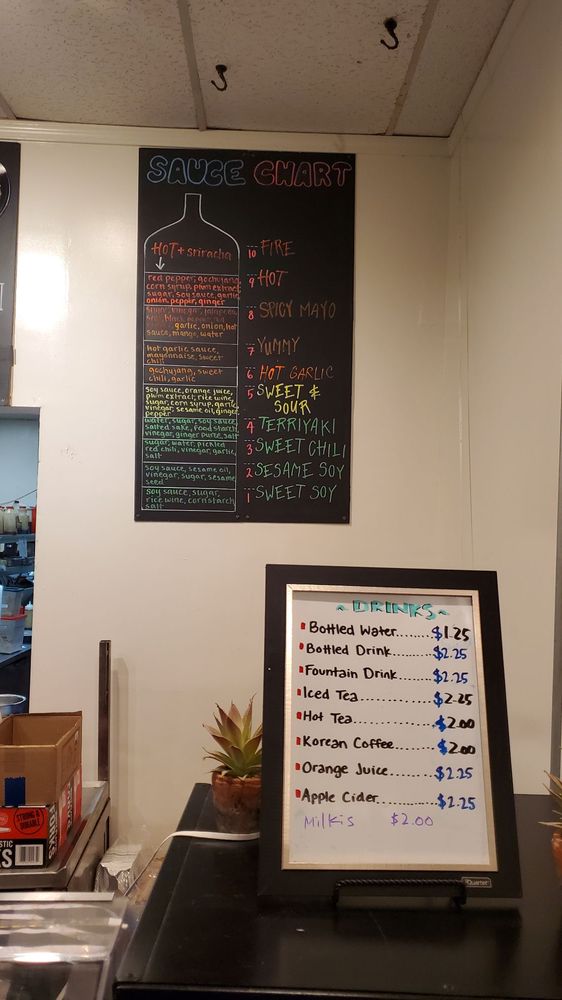 SAUCE CHART
HOT + sriracha
10 FIRE
red pepper, gochujang,
corn syrup, plum extract,
sugar, soy sauce, garlic,
onion, pepper, ginger
9 HOT
garlic, onion, hot
sauce, mango, water
8 SPICY MAYO
hot garlic sauce,
mayonnaise, sweet
chili
7 YUMMY
gochujang, sweet
chili, garlic
6 HOT GARLIC
soy sauce, orange juice,
plum extract, rice wine,
sugar, corn syrup, garlic,
vinegar, sesame oil, ginger,
pepper
5 SWEET &
SOUR
water, sugar, soy sauce,
salted sake, food starch,
vinegar, ginger puree, salt
4 TERRIYAKI
sugar, water, pickled
red chili, vinegar, garlic,
salt
3 SWEET CHILI
soy sauce, sesame oil,
vinegar, sugar, sesame
seed
2 SESAME SOY
soy sauce, sugar,
rice wine, cornstarch
salt
1 SWEET SOY
~ DRINKS ~
Bottled Water.......$1.25
Bottled Drink.......$2.25
Fountain Drink......$2.25
Iced Tea............$2.25
Hot Tea.............$2.00
Korean Coffee.......$2.00
Orange Juice........$2.25
Apple Cider.........$2.25
Milkis $2.00
Quartet
STRONG &
DURABLE